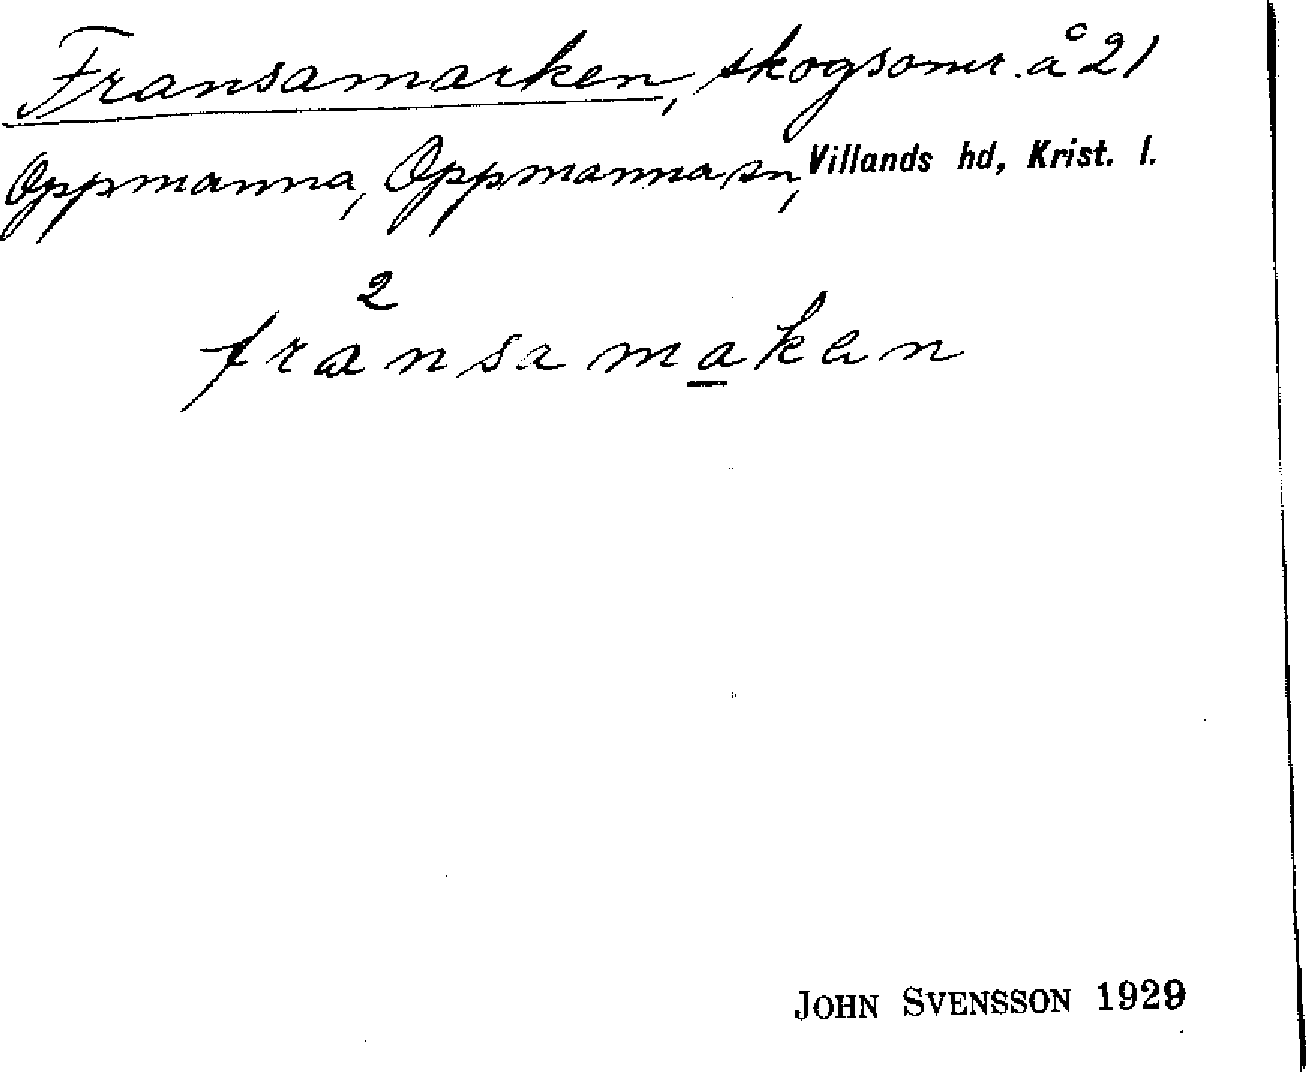 Fransamarken, skogsomr. å 21
Oppmanna, Oppmanna sn, Villands hd, Krist. l.
2
fransamaken
JOHN SVENSSON 1929